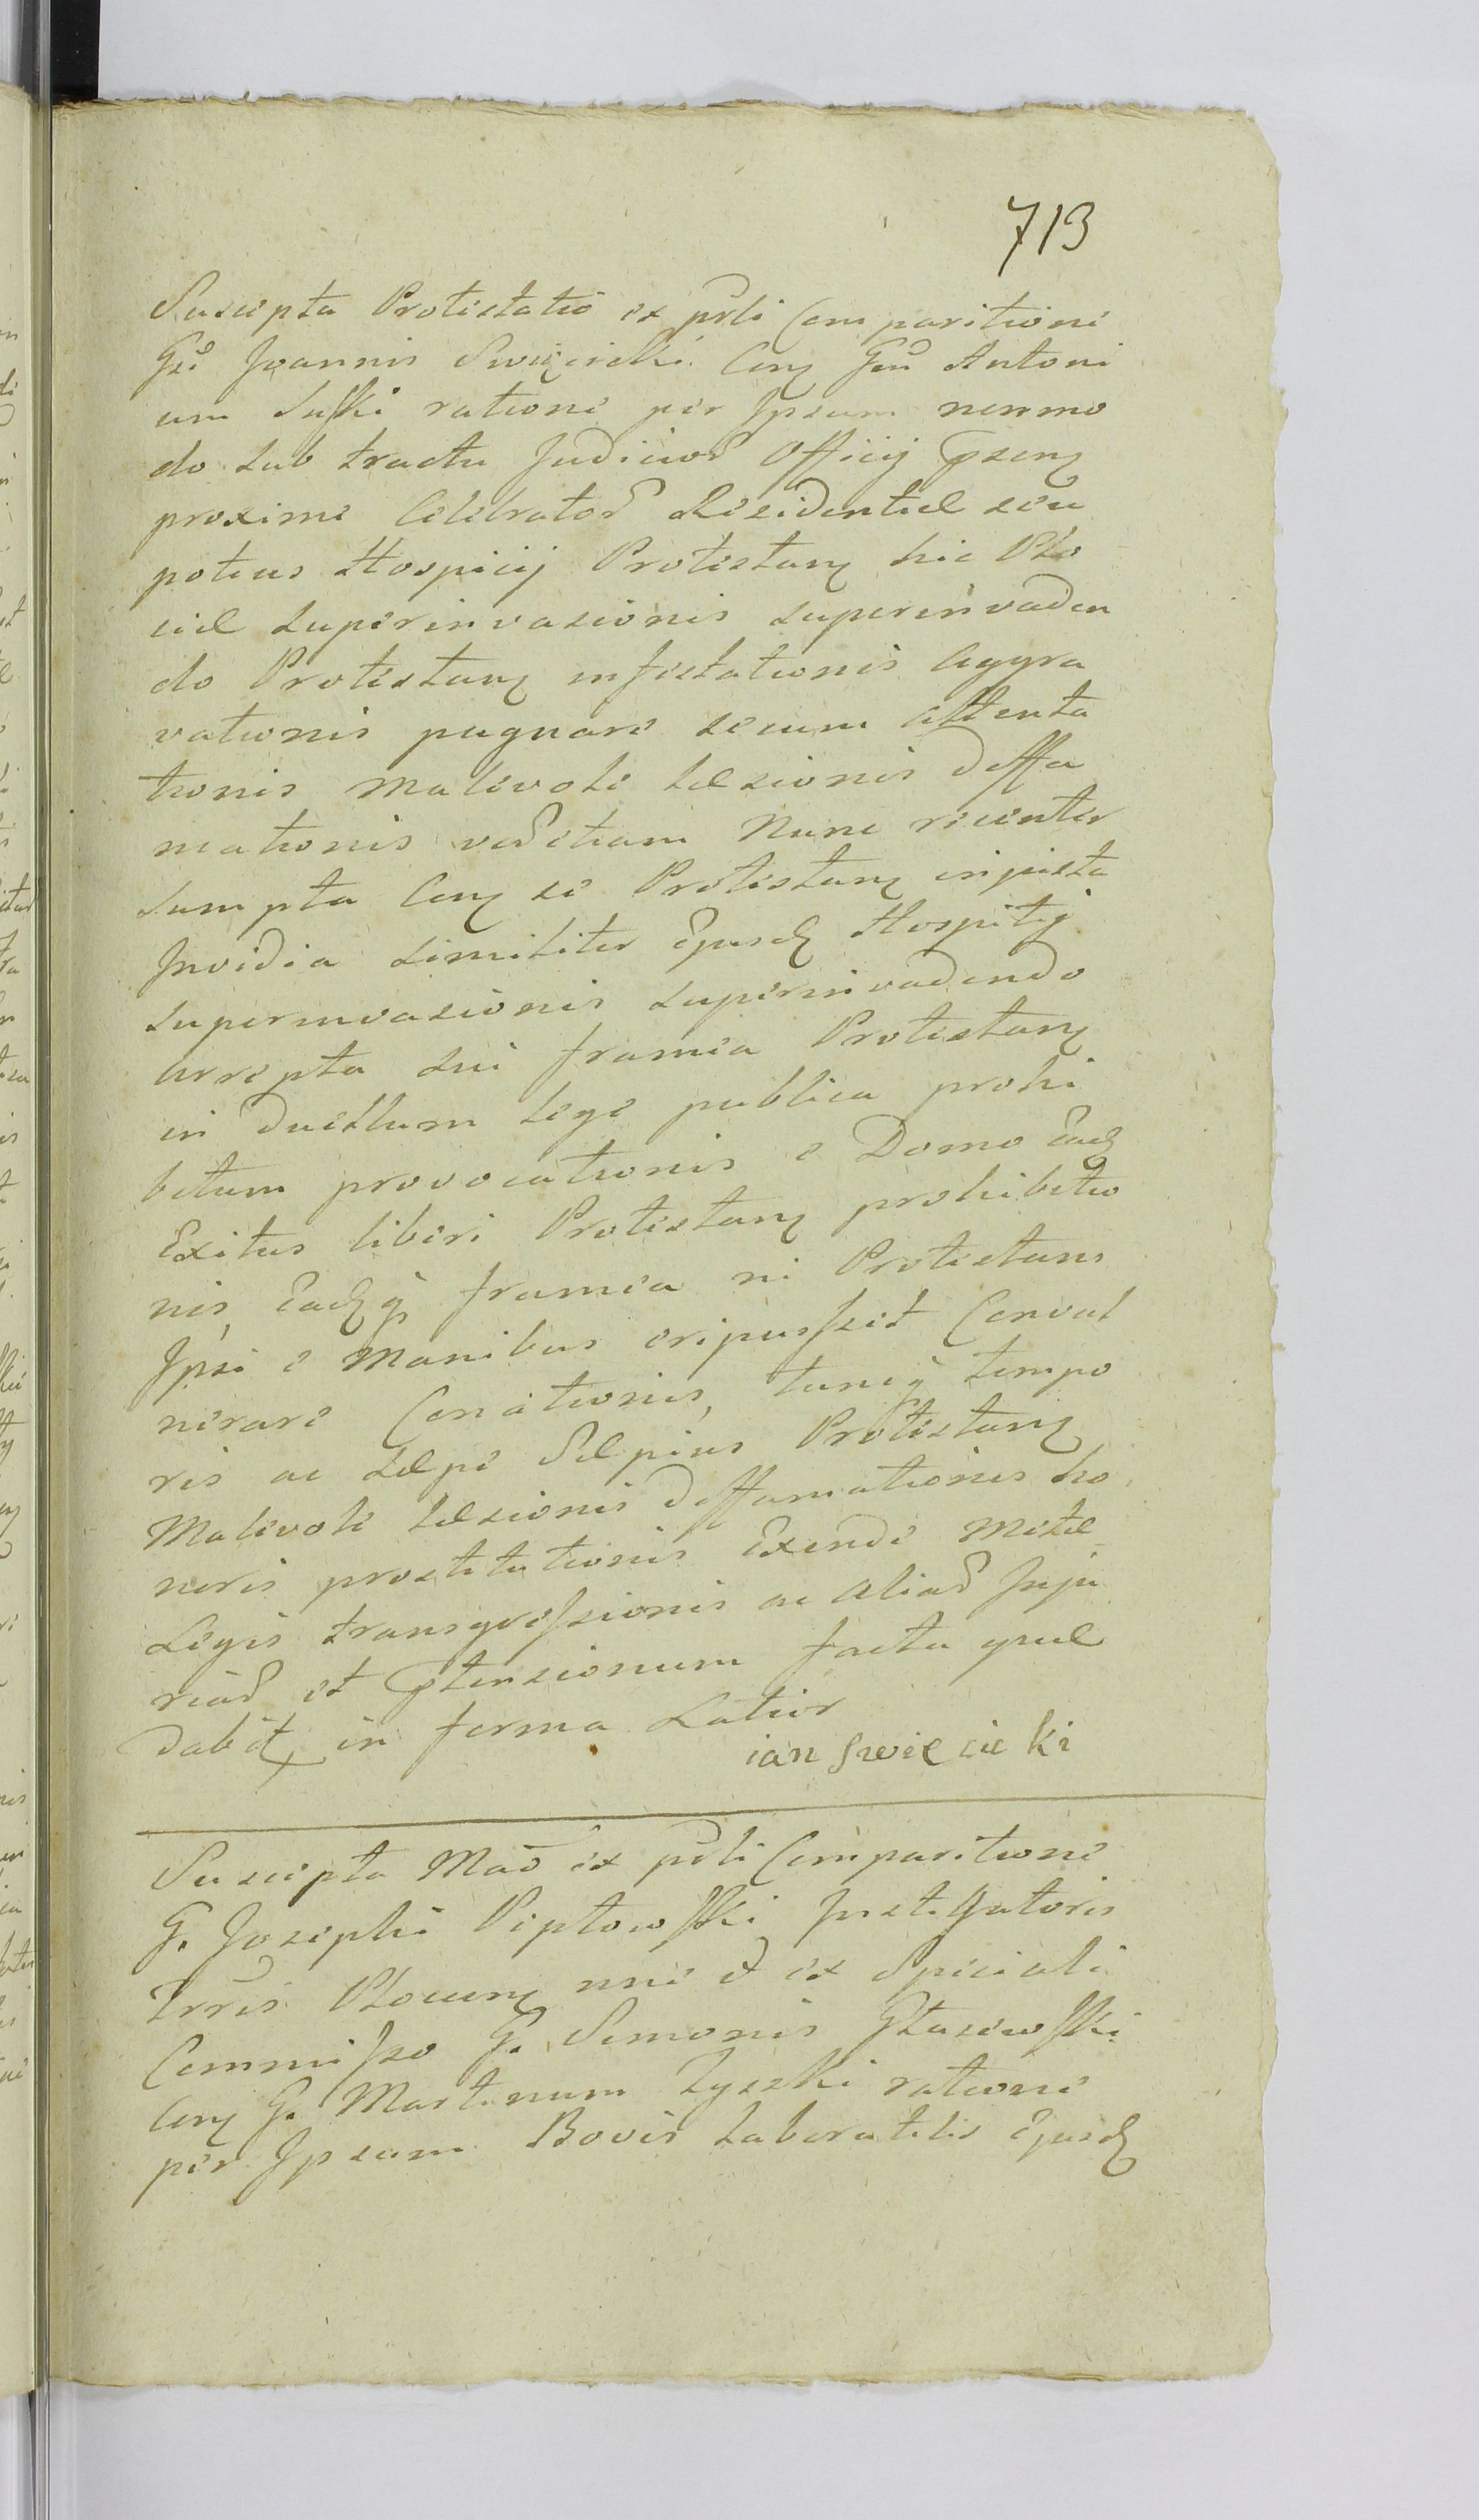 713
Suscepta Protestatio ex psli Comparitione
Gsi Joannis Swięcicki Con Gsu Antoni
um Suski ratione per Ipsum nenmo
do sub tractu Judicior Officij psen
proxime Celebrator Residentiæ seu
potius Hospicij Protestan hic Plo
ciæ superinvasionis superinvaden
do Protestan infestationis Aggra
vationis pugnare secum attenta
tionis Malevole læsionis deffa
mationis vel etiam Nunc recenter
sumpta Con se Protestan injusta
Invidia similiter Ejusd Hospitij
superinvasionis superinvadendo
Arrepta sui framea Protestan
in duellum lege publica prohi
bitum provocationis e Domo Ead
Exitus liberi Protestan prohibitio
nis, Eadq framea ni Protestans
Ipsi e Manibus eripuisset Convul
nerare Conationis, tuncq tempo
ris ac sæpe sæpius Protestan
Malevole læsionis deffamationis ho
noris prostitutionis Exinde
Legis transgressionis ac aliar Inju
riar et ptensionum facta quæ
dabit in forma Latior
ian swięcicki
Suscepta Mao ex psli Comparitione
G. Josephi Piptowski Instigatoris
Trris Plocen nne et ex Speciali
Commisso G. Simonis Gtasewski
Con G. Martinum Zyski ratione
per Ipsum Bovis laboratilis Ejusd